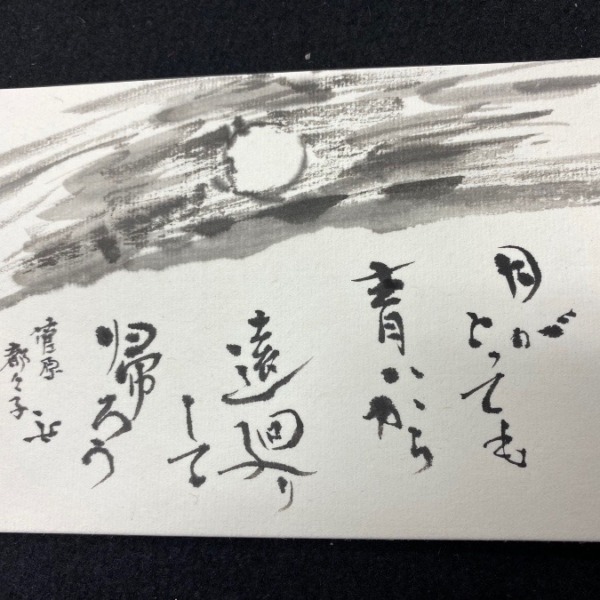 月が
とっても
青いから
遠廻り
して
帰ろう
清原
都々子